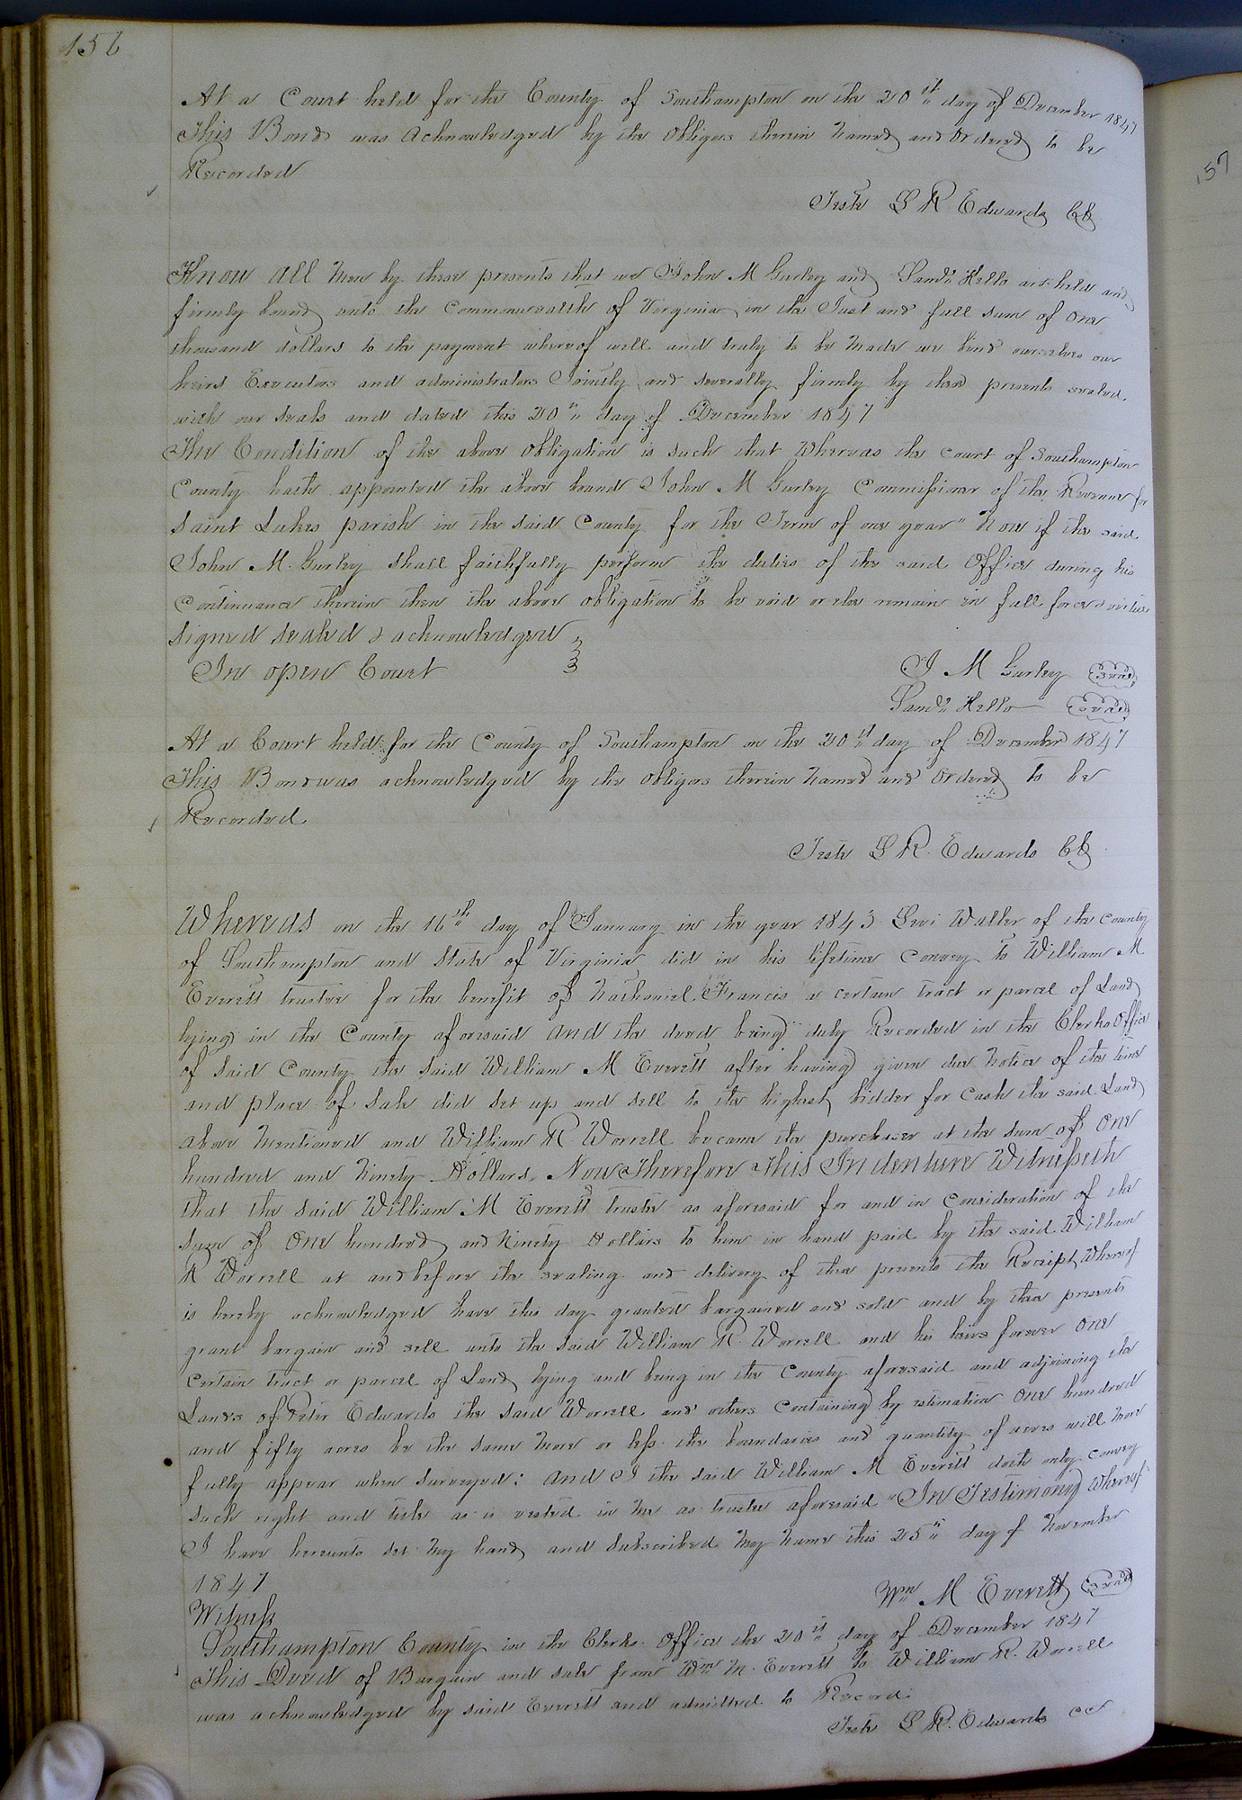 156
At a Court held for the County of Southampton on the 20th day of December 1847
This Bond was acknowledged by the obligors therein named and Ordered to be
Recorded
Teste L R Edwards Clk
Know all men by these presents that we John M Gurley and Saml Kello are held and
firmly bound unto the Commonwealth of Virginia in the Just and full sum of One
thousand dollars to the payment whereof well and truly to be made we bind ourselves our
heirs Executors and administrators Jointly and severally firmly by these presents sealed
with our seals and dated this 20th day of December 1847
The Condition of the above obligation is such that Whereas the court of Southampton
County hath appointed the above bound John M Gurley Commissioner of the Revenue for
Saint Lukes parish in the said County for the Term of one year" Now if the said
John M. Gurley shall faithfully perform the duties of the said Office during his
Continuance therein then the above obligation to be void or else remain in full force & virtue
Signed sealed & acknowledged
In open Court
J M Gurley Seal
Kello Seal
At a Court held for the County of Southampton on the 20th day of December 1847
This Bond was acknowledged by the obligors therein named and Ordered to be
Recorded
Teste L R. Edwards Clk
Whereas on the 16th day of January in the year 1843 Levi Waller of the County
of Southampton and State of Virginia did in his lifetime convey to William M
Everett trustee for the benefit of Nathaniel Francis a certain tract or parcel of Land
lying in the County aforesaid and the deed being duly Recorded in the Clerks Office
of said County the said William M Everett after having given due notice of the time
and place of sale did set up and sell to the highest bidder for Cash the said Land
above mentioned and William R Worrell became the purchaser at the sum of One
hundred and Ninety Dollars. Now Therefore This Indenture Witnesseth
that the said William M Everett trustee as aforesaid for and in Consideration of the
sum of One hundred and Ninety Dollars to him in hand paid by the said William
R Worrell at and before the sealing and delivery of these presents the Receipt Whereof
is hereby acknowledged have this day granted bargained and sold and by these presents
grant bargain and sell unto the said William R. Worrell and his heirs forever One
certain tract or parcel of Land lying and being in the County aforesaid and adjoining the
Lands of Peter Edwards the said Worrell and others Containing by estimation One hundred
and fifty acres be the same more or less the boundaries and quantity of acres will more
fully appear when surveyed: and I the said William M Everett doth only convey
such right and title as is vested in me as trustee aforesaid "In Testimony Whereof
I have hereunto set my hand and subscribed my name this 25th day of November
1847
Wm M Everett Seal
Witness
Southampton County in the Clerks Office the 20th day of December 1847
This Deed of Bargain and sale from Wm M. Everett to William R. Worrell
was acknowledged by said Everett and admitted to Record.
Teste L R. Edwards CC
157